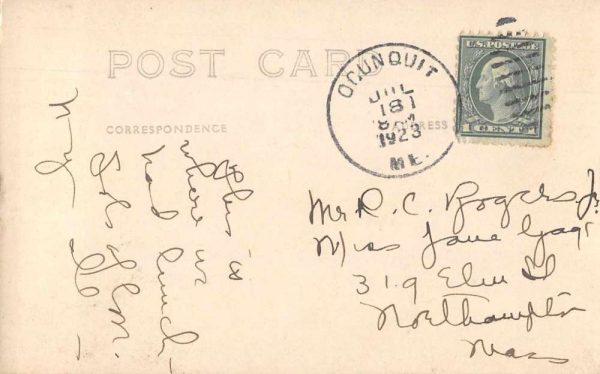 POST CARD
CORRESPONDENCE
ADDRESS
OGUNQUIT
JUL
18
1923
ME.
U.S. POSTAGE
1 CENT 1
This is
where we
had lunch
Mr R. C. Rogers Jr
Miss Jane
319 Elm St
Northampton
Mass